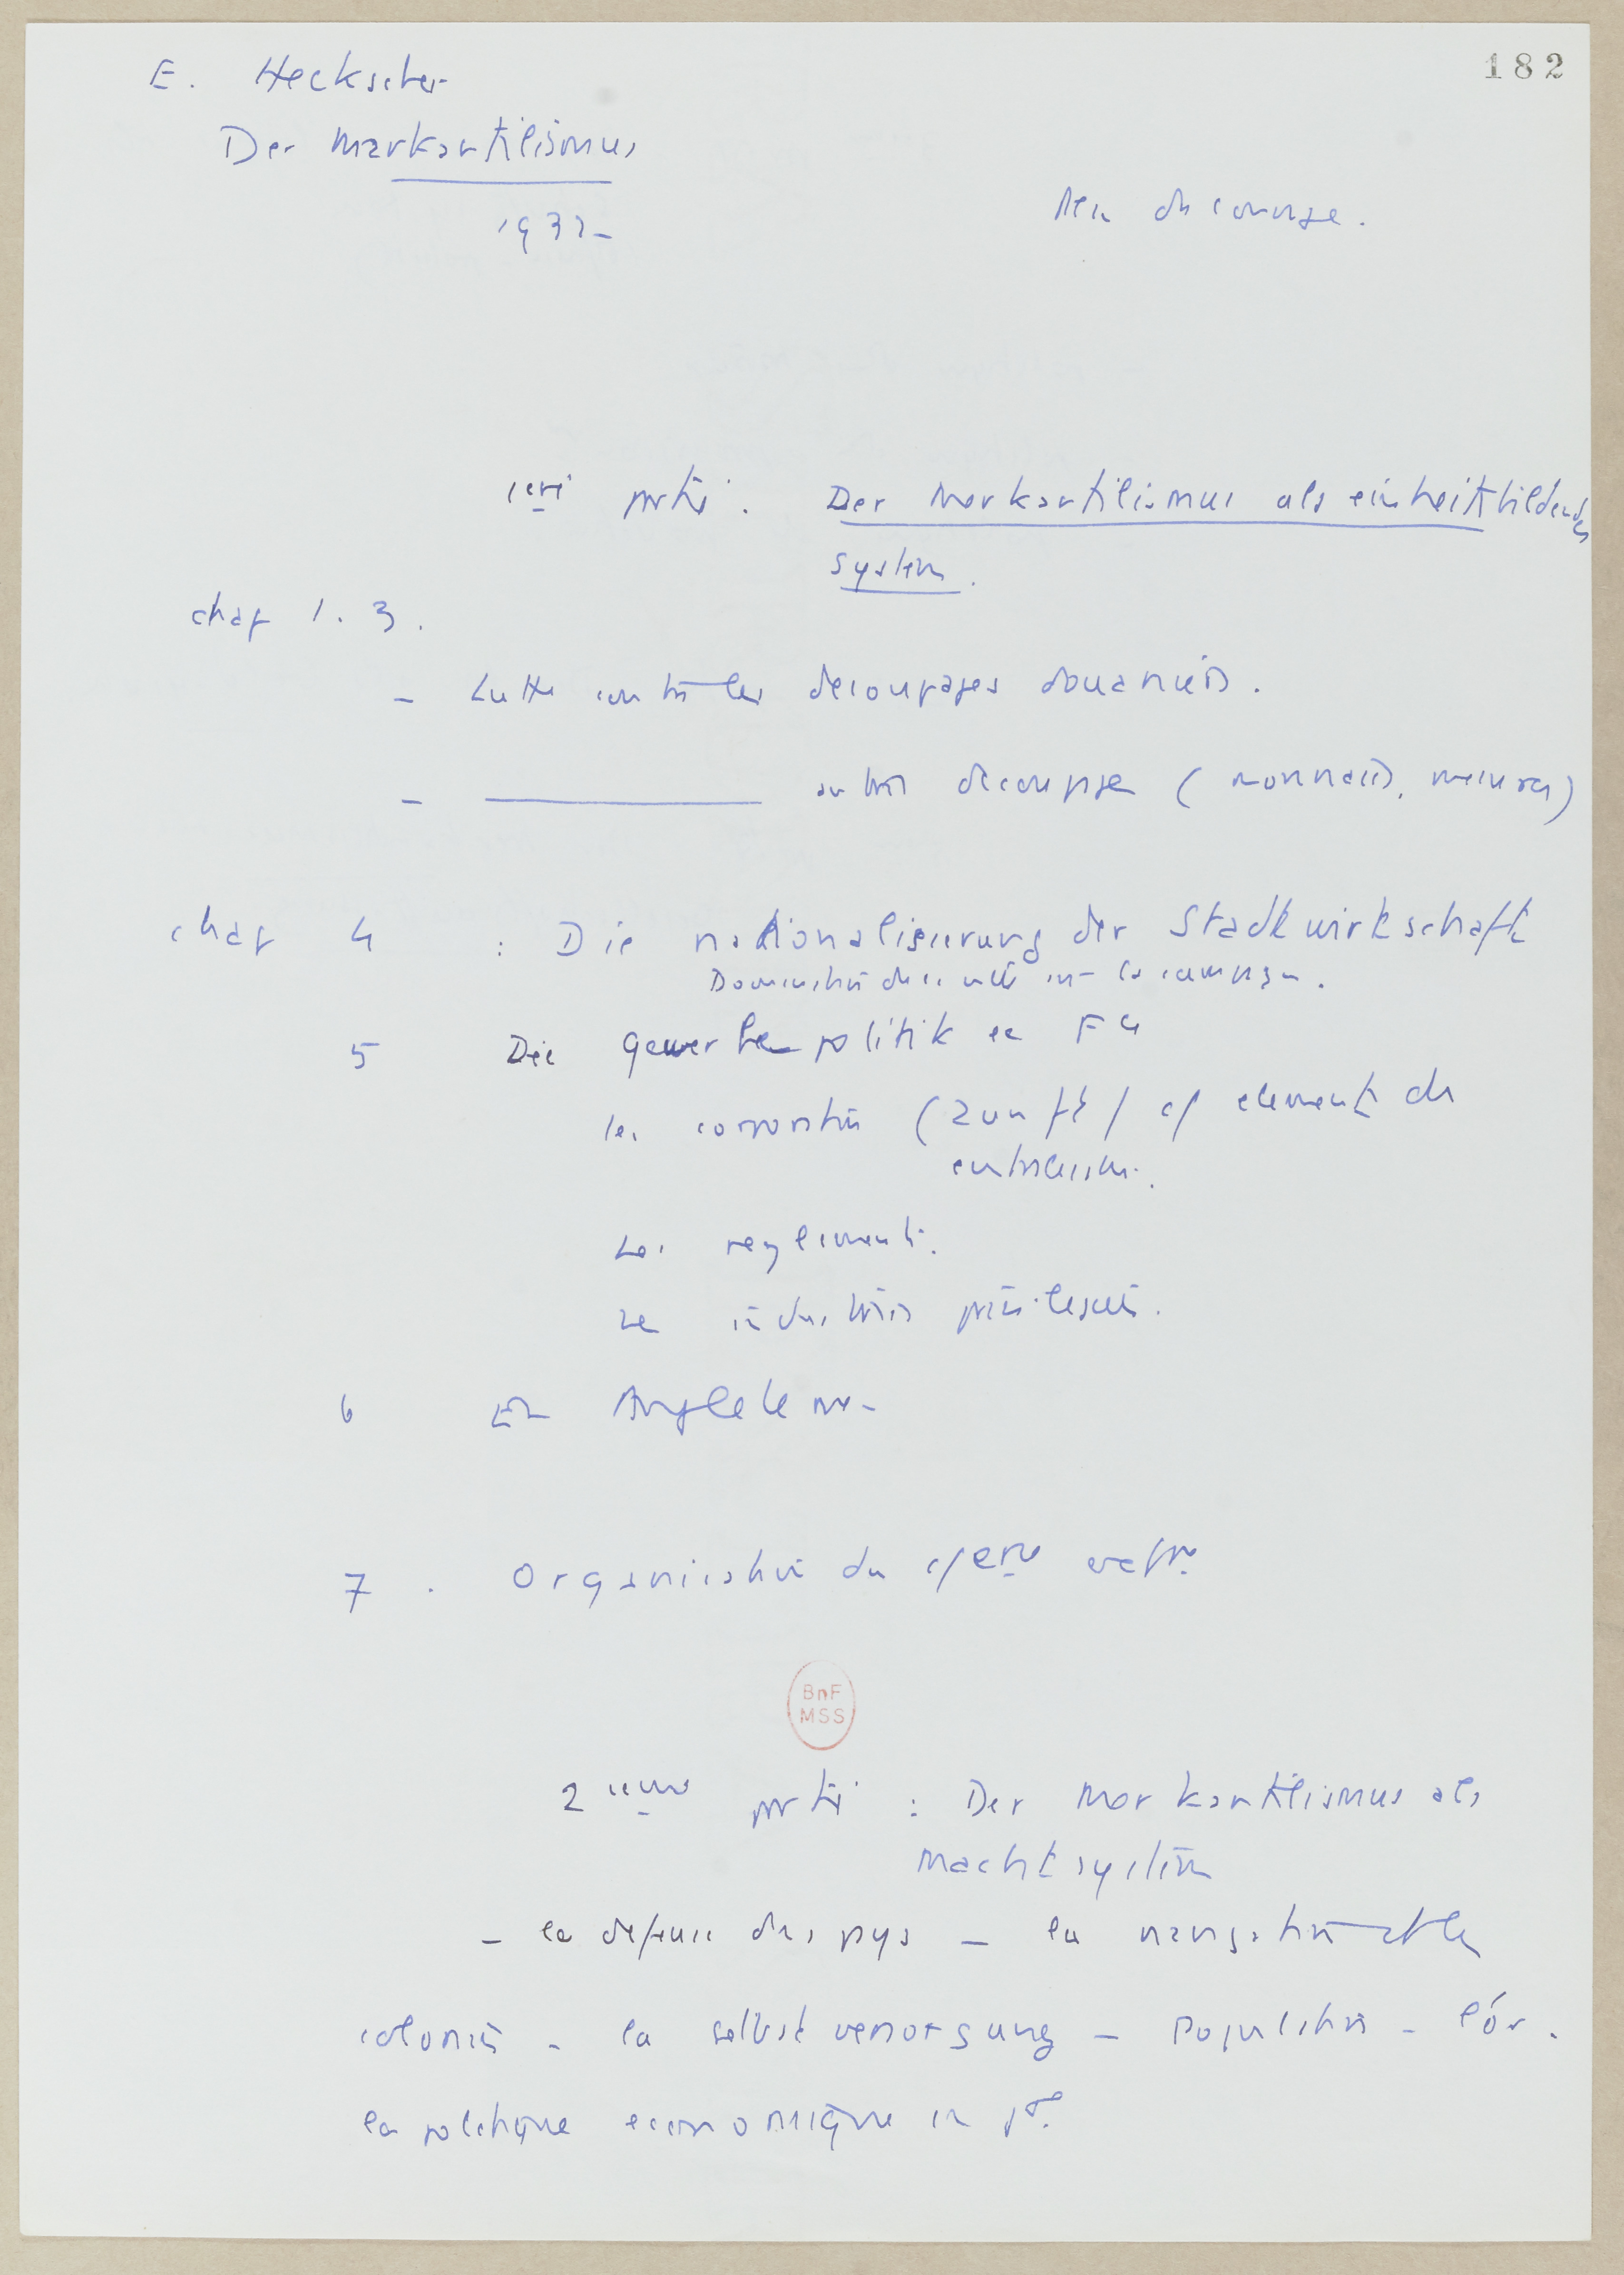 182
E. Heckscher
Der Merkantilismus
1932
Plan du commerce.
1ere partie. Der Merkantilismus als einheitbildendes
System.
chap 1. 3.
- Lutte contre les decoupages douaniers.
- autres decoupages (monnaies, mesures)
chap 4 : Die nationalisierung der Stadtwirtschaft
Domination de la ville sur la campagne.
5 Die Gewerbepolitik en Fce
les corporations (Zunft) c/ element de
Les reglements.
Les industries privilegiees.
6 En Angleterre
7. Organisation du c/erce
BnF
MSS
2ieme partie : Der Merkantilismus als
Machtsystem
- la defense des pays - la navigation et les
colonies - la selbstversorgung - Population - l'or.
la politique economique en